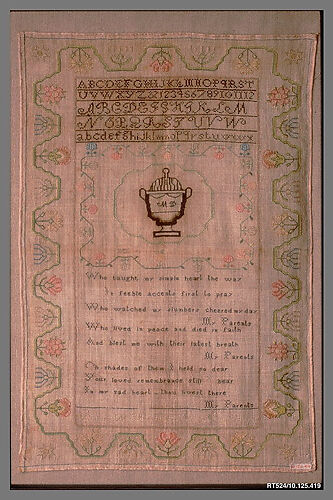 ABCDEFGHIJKLMNOPQRST
UVWXYZ123456789101112
ABCDEFGHIKLM
NOPQRSTUVW
abcdefghijklmnopqrstuvwxyz
M D
Who taught my simple heart the way
In feeble accents first to pray
Who watched my slumbers cheered my day
My Parents
Who lived in peace and died in faith
And blest me with their latest breath
My Parents
Oh shades of them I held so dear
Your loved remembrance still bear
In my sad heart Thou livest there
My Parents
RT524/10.125.419